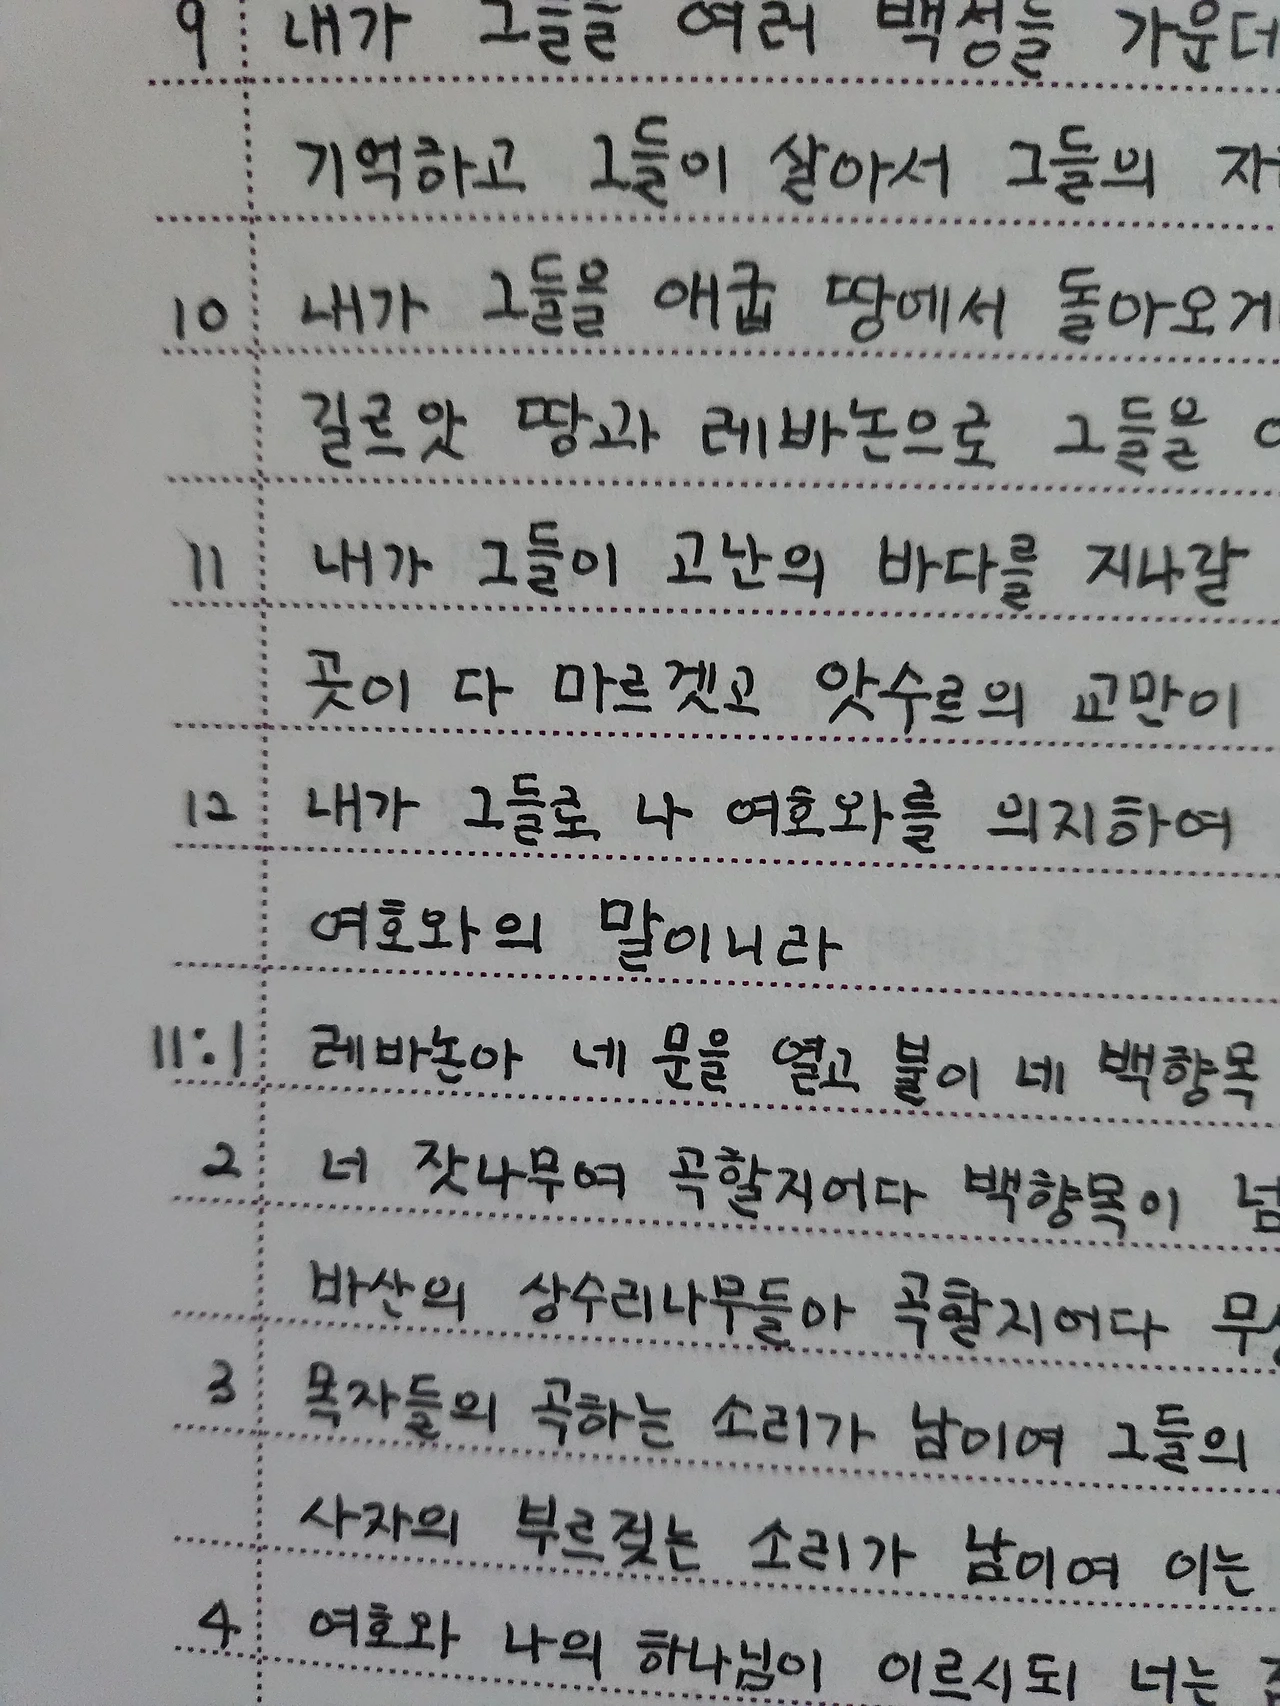 9 내가 그들을 여러 백성들 가운데
기억하고 그들이 살아서 그들의
10 내가 그들을 애굽 땅에서 돌아오게
길르앗 땅과 레바논으로 그들을
11 내가 그들이 고난의 바다를 지나갈
곳이 다 마르겟고 앗수르의 교만이
12 내가 그들로 나 여호와를 의지하여
여호와의 말이니라
11:1 레바논아 네 문을 열고 불이 네 백향목
2 너 잣나무여 곡할지어다 백향목이
바산의 상수리나무들아 곡할지어다
3 목자들의 곡하는 소리가 남이여 그들의
사자의 부르짖는 소리가 남이여 이는
4 여호와 나의 하나님이 이르시되 너는